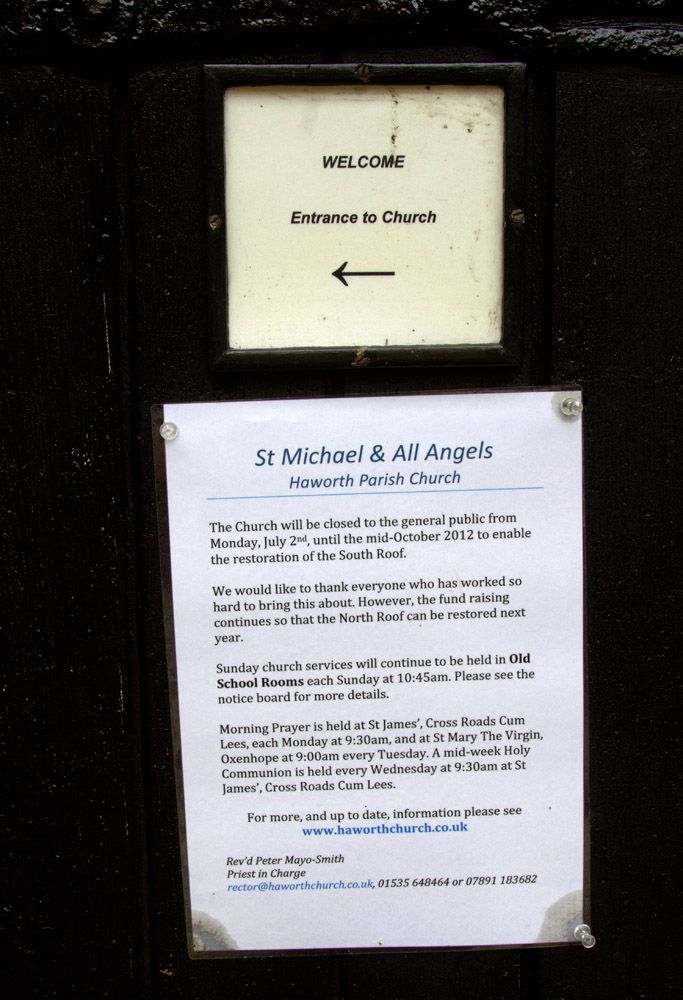 WELCOME
Entrance to Church
←
St Michael & All Angels
Haworth Parish Church
The Church will be closed to the general public from
Monday, July 2nd, until the mid-October 2012 to enable
the restoration of the South Roof.
We would like to thank everyone who has worked so
hard to bring this about. However, the fund raising
continues so that the North Roof can be restored next
year.
Sunday church services will continue to be held in Old
School Rooms each Sunday at 10:45am. Please see the
notice board for more details.
Morning Prayer is held at St James', Cross Roads Cum
Lees, each Monday at 9:30am, and at St Mary The Virgin,
Oxenhope at 9:00am every Tuesday. A mid-week Holy
Communion is held every Wednesday at 9:30am at St
James', Cross Roads Cum Lees.
For more, and up to date, information please see
www.haworthchurch.co.uk
Rev'd Peter Mayo-Smith
Priest in Charge
rector@haworthchurch.co.uk, 01535 648464 or 07891 183682